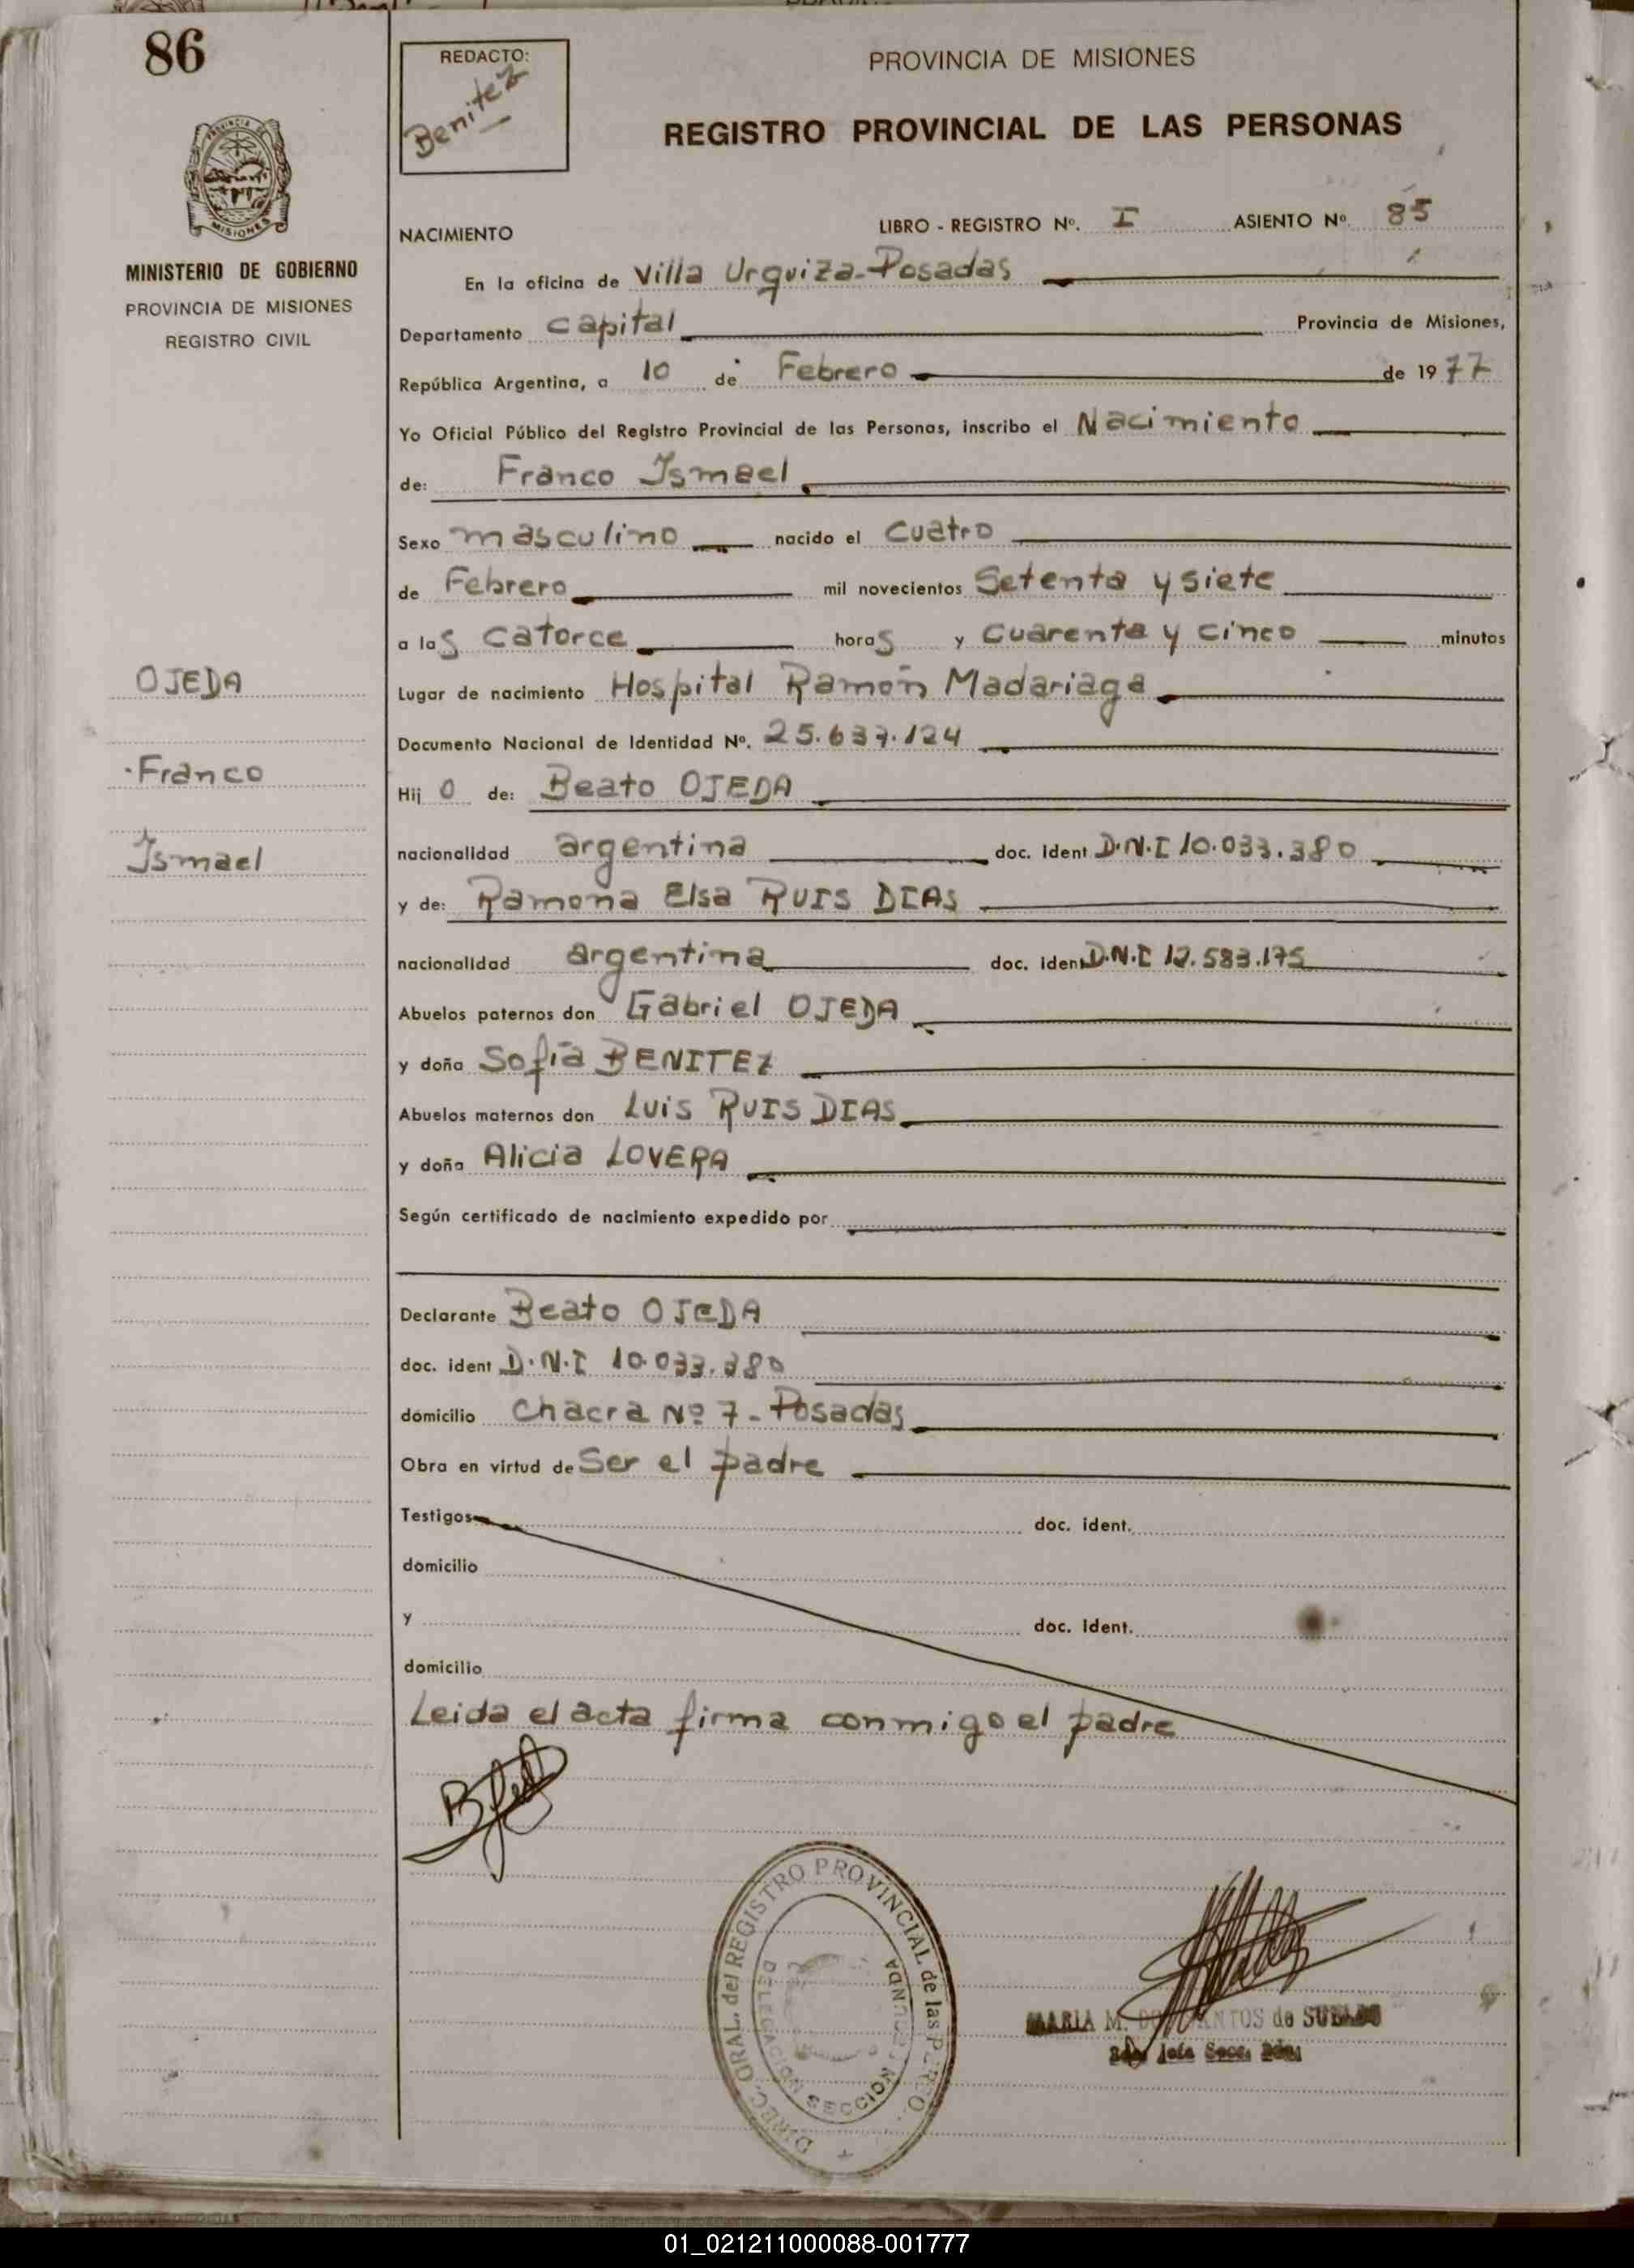 86
REDACTO:
Benitez
PROVINCIA DE MISIONES
REGISTRO PROVINCIAL DE LAS PERSONAS
MISIONES
MINISTERIO DE GOBIERNO
PROVINCIA DE MISIONES
REGISTRO CIVIL
NACIMIENTO LIBRO - REGISTRO Nº. I ASIENTO Nº. 85
En la oficina de Villa Urquiza-Posadas
Departamento Capital Provincia de Misiones,
República Argentina, a 10 de Febrero de 1977
Yo Oficial Público del Registro Provincial de las Personas, inscribo el Nacimiento
de: Franco Ismael
Sexo masculino nacido el Cuatro
de Febrero mil novecientos Setenta y siete
a las Catorce horas y Cuarenta y cinco minutos
OJEDA
Franco
Ismael
Lugar de nacimiento Hospital Ramón Madariaga
Documento Nacional de Identidad Nº. 25.637.124
Hijo de: Beato OJEDA
nacionalidad argentina doc. ident D.N.I 10.033.380
y de: Ramona Elsa RUIS DIAS
nacionalidad argentina doc. ident D.N.I 12.583.175
Abuelos paternos don Gabriel OJEDA
y doña Sofía BENITEZ
Abuelos maternos don Luis RUIS DIAS
y doña Alicia LOVERA
Según certificado de nacimiento expedido por
Declarante Beato OJEDA
doc. ident D.N.I 10.033.380
domicilio Chacra Nº 7 - Posadas
Obra en virtud de Ser el padre
Testigos doc. ident.
domicilio
y doc. ident.
domicilio
Leida el acta firma conmigo el padre
DIREC. GRAL. del REGISTRO PROVINCIAL de las
DELEGACION SECCION
MARIA M. de
01_021211000088-001777